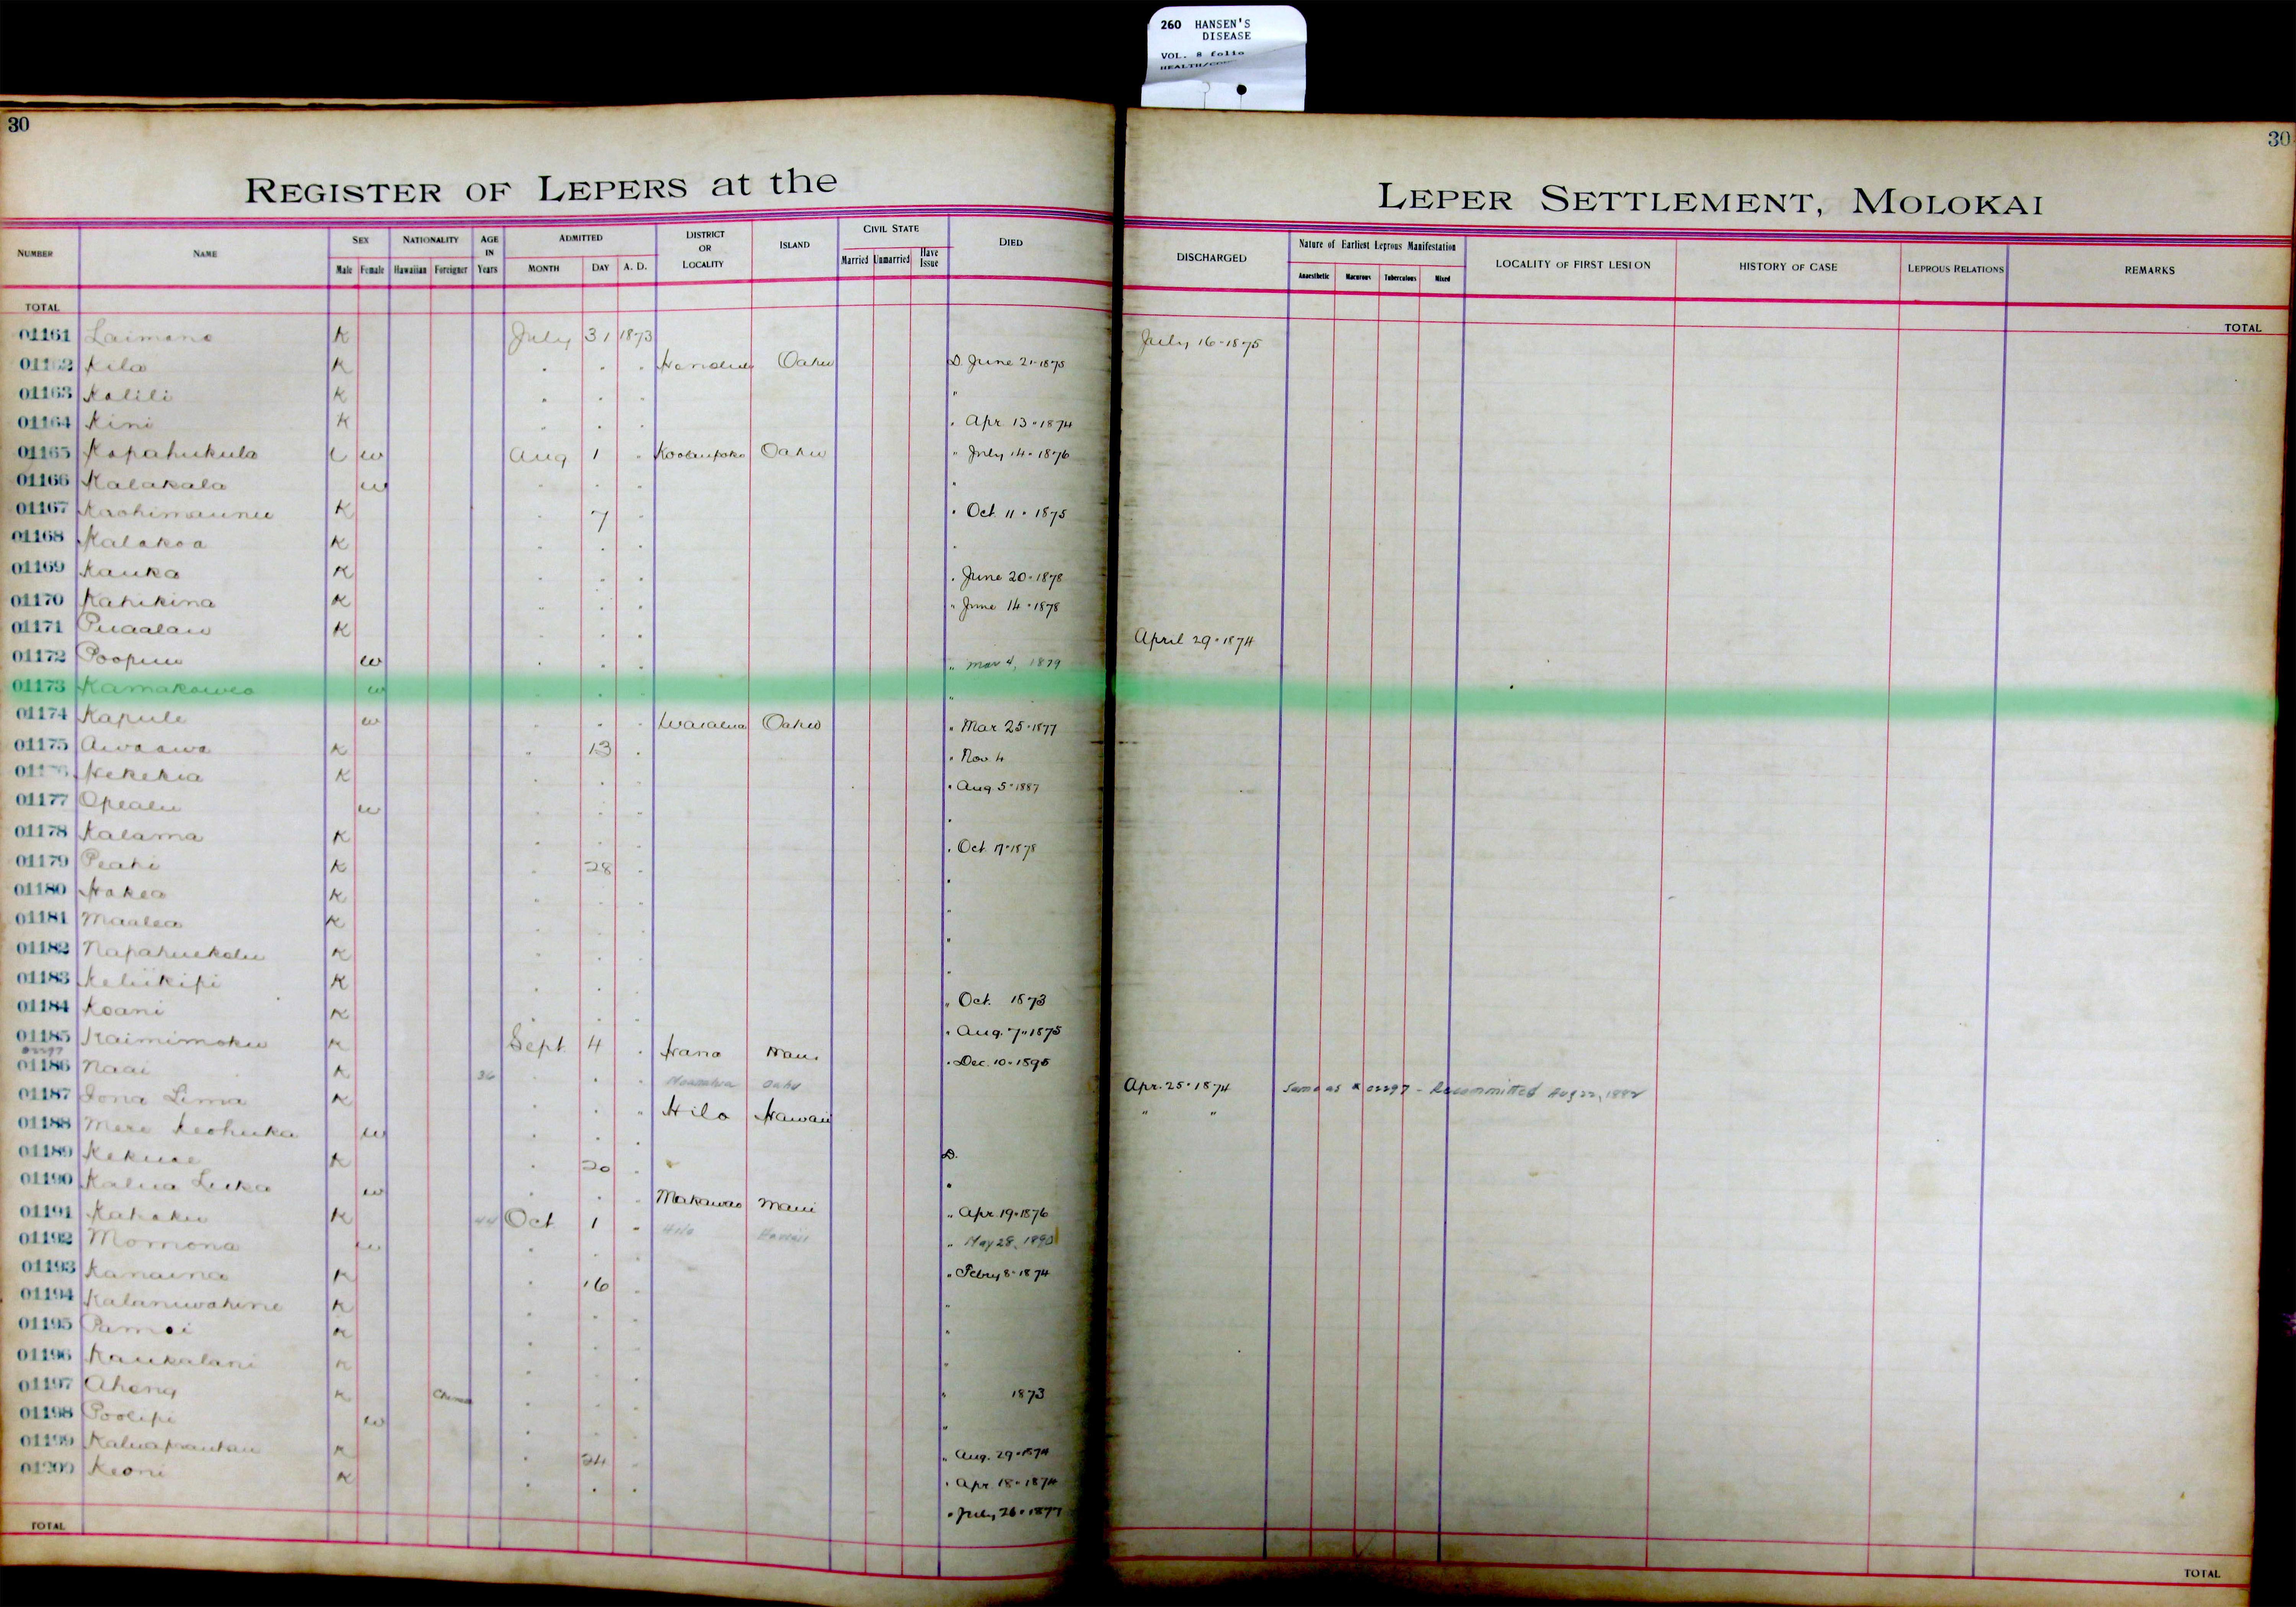 260 HANSEN'S
DISEASE
VOL. 8 folio
30
30
REGISTER OF LEPERS at the
LEPER SETTLEMENT, MOLOKAI
NUMBER NAME SEX Male Female NATIONALITY Hawaiian Foreigner AGE IN Years ADMITTED MONTH DAY A. D. DISTRICT OR LOCALITY ISLAND CIVIL STATE Married Unmarried Have Issue DIED
DISCHARGED Nature of Earliest Leprous Manifestation Anaesthetic Macurous Tuberculous Mixed LOCALITY OF FIRST LESION HISTORY OF CASE LEPROUS RELATIONS REMARKS
TOTAL
TOTAL
01161 Laimana K July 31 1873 July 16-1875
Kila K " " " Honolulu Oahu D. June 21-1875
01163 Kalili K " " " "
01164 Kini K " " " " Apr. 13-1874
01165 Kapahukula w Aug 1 " Koolaupoko Oahu " July 14-1876
01166 Kalakala w " " " "
01167 K " 7 " " Oct. 11-1875
01168 Kalakoa K " " " "
01169 Kauka K " " " " June 20-1878
01170 Kahikina K " " " " June 14-1878
01171 Puaalau K " " " April 29-1874
01172 w " " " " Mar 4, 1879
01173 Kamakawea w " " " "
01174 Kapule w " " " Waialua Oahu " Mar. 25-1877
01175 Awaawa K " 13 " " Nov. 4
Kekekia K " " " " Aug 5-1887
01177 Opealu w " " " "
01178 Kalama K " " " " Oct. 17-1878
01179 Peahi K " 28 " "
01180 Hakea K " " " "
01181 Maalea K " " " "
01182 Napahuekolu K " " " "
01183 Keliikipi K " " " " Oct. 1873
01184 Koani K " " " " Aug. 7-1875
01185 Kaimimoku K Sept 4 " Hana Maui " Dec. 10-1895
01186 Naai K 36 " " " Oahu Apr. 25-1874 Same as # 02297 - Recommitted Aug 22, 1882
01187 Iona Lima K " " " Hilo Hawaii " "
01188 Mere Keohuka w " " " D.
01189 Kekuae K " 20 " "
01190 Kalua Luka w " " " Makawao Maui " Apr. 19-1876
01191 Kahaku K 44 Oct 1 " Hilo Hawaii " May 28, 1890
01192 Momona w " " " " Febry 8-1874
01193 Kanaina K " 16 " "
01194 Kalaniwahine K " " " "
01195 K " " " "
01196 Kaukalani K " " " " 1873
01197 Ahong K " " " "
01198 Poolipi w " " " " Aug. 29-1874
01199 K " 24 " " Apr. 18-1874
01200 Keoni K " " " " July 26-1877
TOTAL
TOTAL